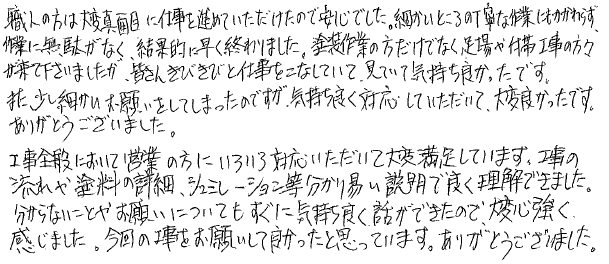 職人の方は大変真面目に仕事を進めていただけたので安心でした。細かいところの丁寧な作業にもかかわらず、
作業に無駄がなく、結果的に早く終わりました。塗装作業の方だけでなく足場や付帯工事の方々
が来て下さいましたが、皆さんきびきびと仕事をこなしていて、見ていて気持ち良かったです。
また、少し細かいお願いをしてしまったのですが、気持ち良く対応していただいて、大変良かったです。
ありがとうございました。
工事全般において営業の方にいろいろ対応いただいて大変満足しています。工事の
流れや塗料の詳細、シュミレーション等分かり易い説明で良く理解できました。
分からないことやお願いについてもすぐに気持ち良く話ができたので、大変心強く
感じました。今回の工事をお願いして良かったと思っています。ありがとうございました。